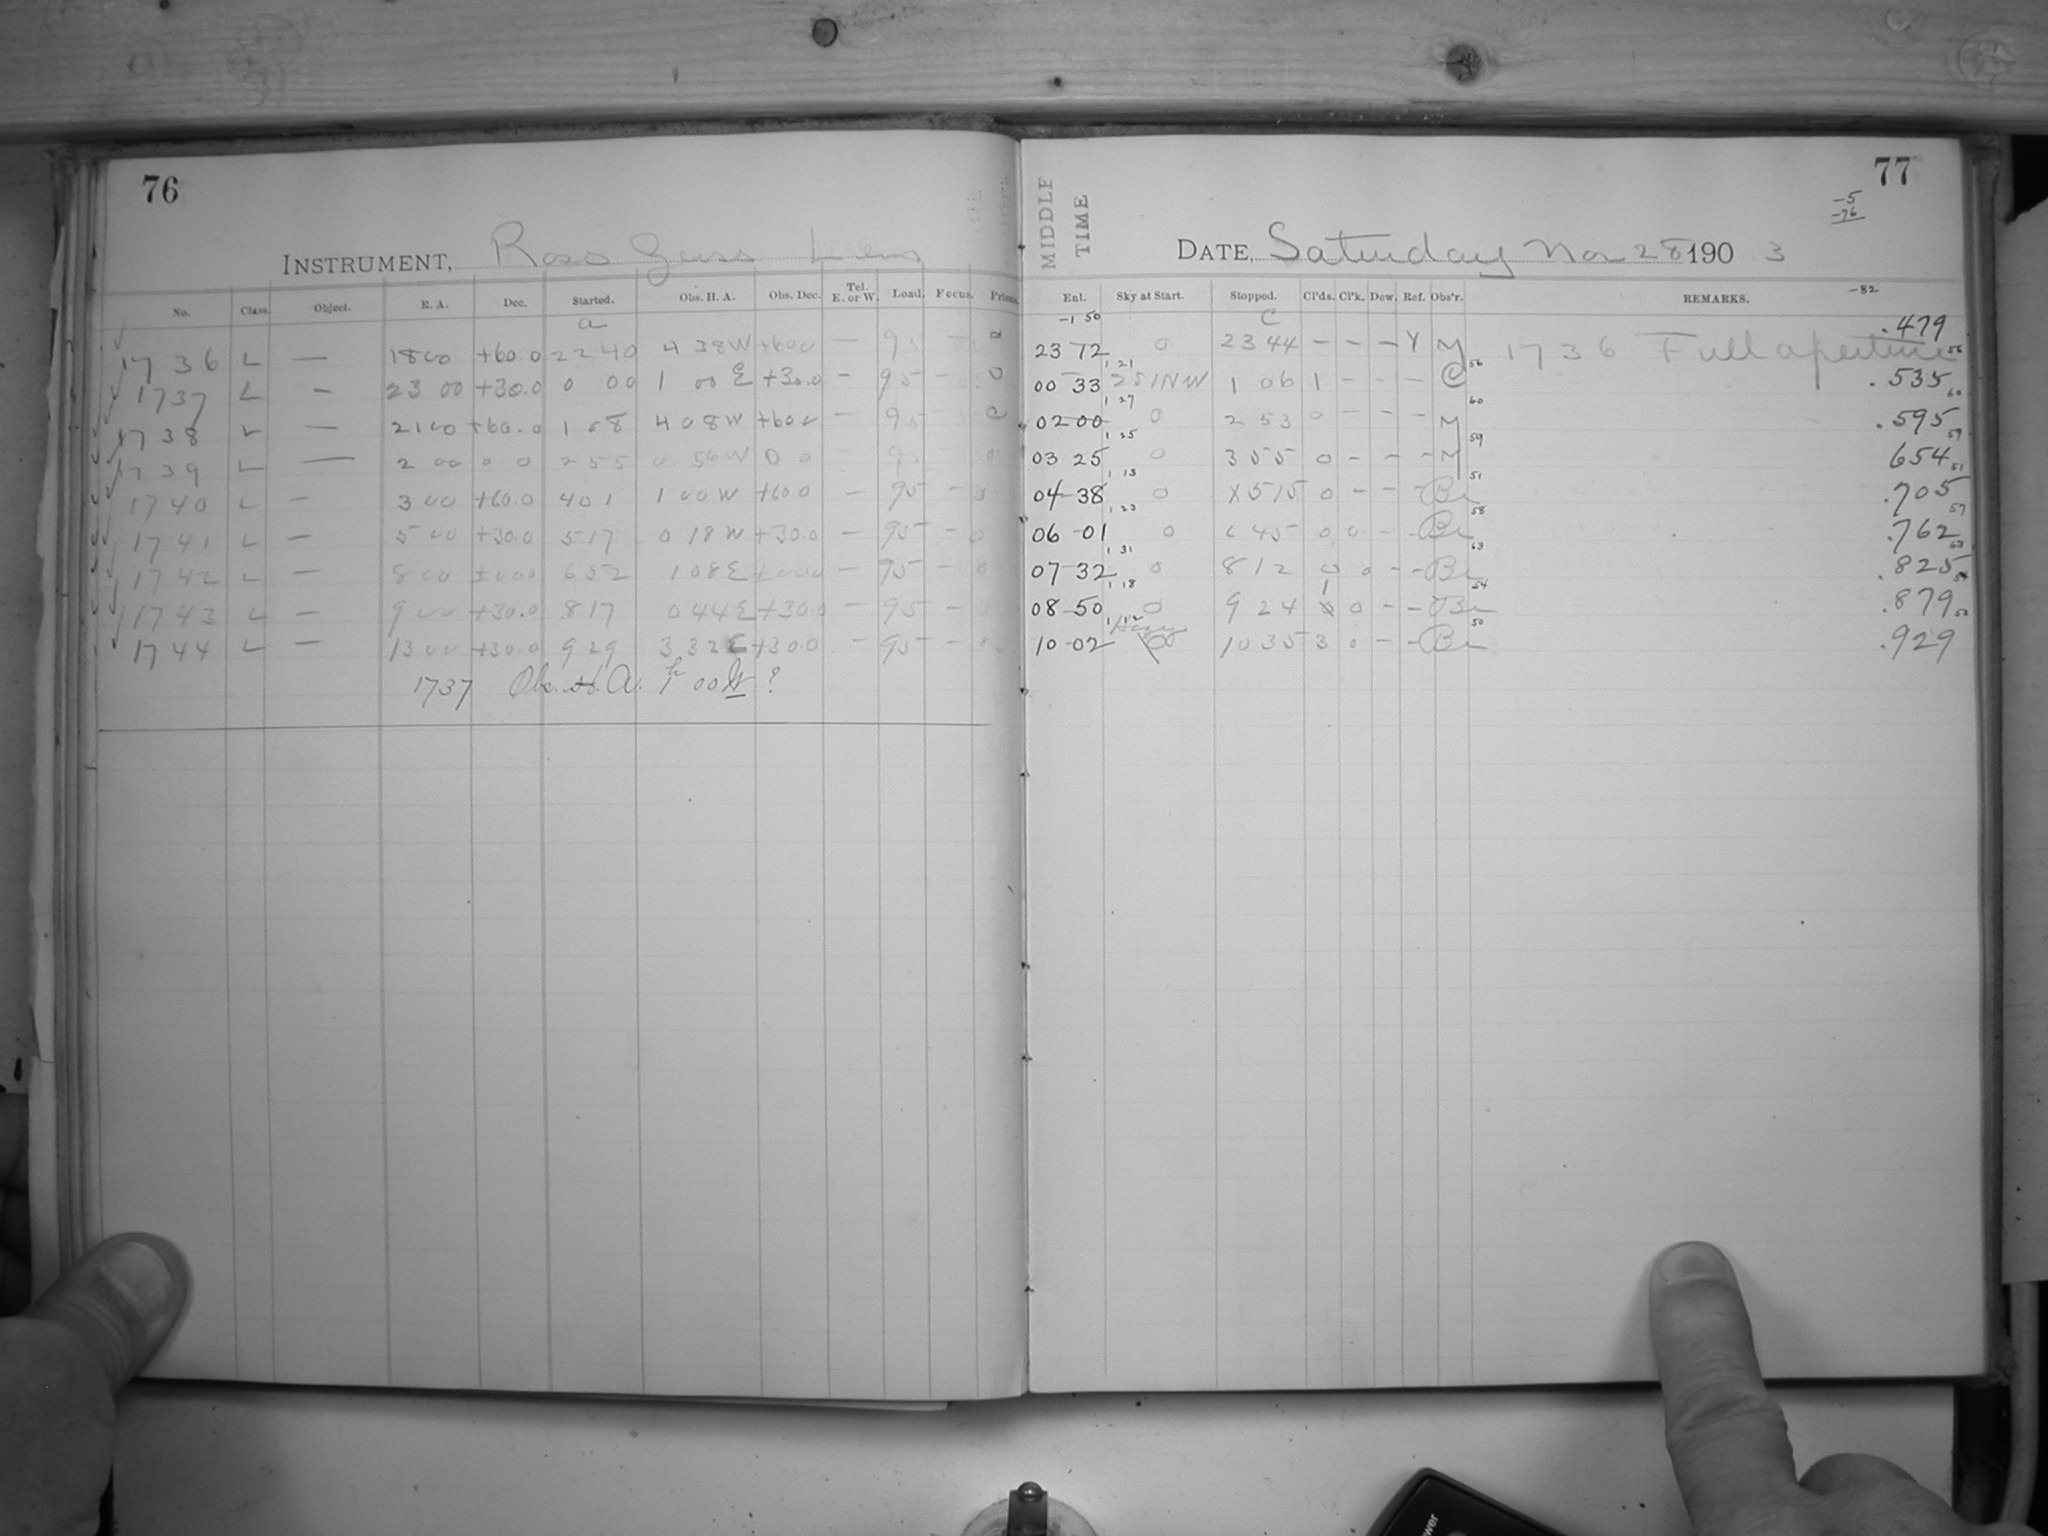 76
INSTRUMENT, Ross Lens
No. Class. Object. R. A. Dec. Started. Obs. H. A. Obs. Dec. Tel. E. or W. Load. Focus. Prism.
a
1736 L — 1800 +60.0 2240 4 38 W +600 — 95 —
1737 L — 23 00 +30.0 0 00 1 00 E +30.0 — 95 — 0
1738 L — 2100 +60.0 1 08 4 08 W +600 — 95 —
1739 L — 2 00 0 0 2 55 0 56 W 0 0 — 95 —
1740 L — 3 00 +60.0 4 01 1 00 W +60.0 — 95 — 0
1741 L — 5 00 +30.0 5 17 0 18 W +30.0 — 95 — 0
1742 L — 8 00 ±000 6 52 1 08 E ±000 — 95 — 0
1743 L — 9 00 +30.0 8 17 0 44 E +30.0 — 95 —
1744 L — 13 00 +30.0 9 29 3 32 E +30.0 — 95 —
1737 Obs. H. A. 1h 00 W ?
77
-5
-76
MIDDLE TIME
DATE, Saturday Nov 28 1903
Ent. Sky at Start. Stopped. Cl'ds. Cl'k. Dew. Ref. Obs'r. REMARKS. -82
-1 50 C
23 72 0 23 44 — — — Y M 1736 Full aperture .479
1 21 56 56
00 33 25 1NW 1 06 1 — — — C .535
1 27 60 60
02 00 0 2 53 0 — — — M .595
1 25 59 59
03 25 0 3 55 0 — — — M 654
1 13 51 51
04 38 0 X515 0 — — — Br .705
1 23 58 57
06 01 0 6 45 0 0 — — Br .762
1 31 63 63
07 32 0 8 12 0 0 — — Br .825
1 18 1 54 54
08 50 0 9 24 0 — — Br .879
1 12 Hazy 50 50
10-02 10 35 3 0 — — Br .929